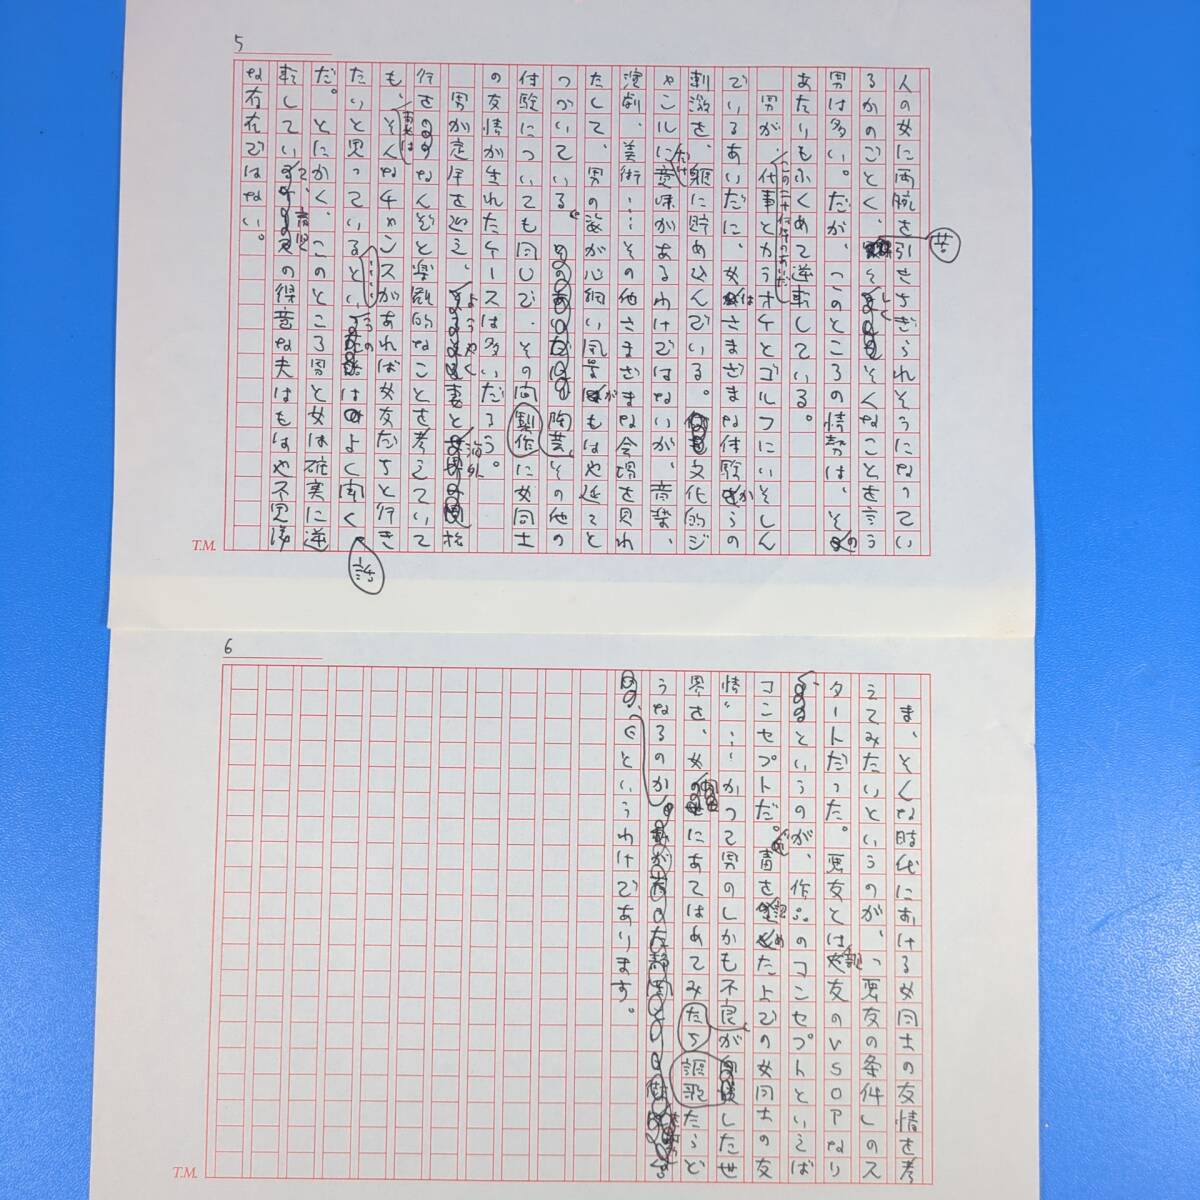 5
人の女に両腕を引きちぎられそうになってい
るかのごとく、そんなことを言う
男は多い。だが、このところの情勢は、その
あたりもふくめて逆転している。
男が、この二十何年のあいだ仕事とカラオケとゴルフにいそしん
でいるあいだに、女はさまざまな体験からの
刺激を、軀に貯め込んでいる。文化的ジ
ャンルにだけ意味があるわけではないが、音楽、
演劇、美術……その他さまざまな会場を見わ
たして、男の姿が心細い風景がもはや延々と
つづいている。陶芸、その他の
体験についても同じで、その向製作に女同士
の友情が生れたケースは多いだろう。
男が定年を迎え、ようやく妻と海外旅
行をなんぞと楽観的なことを考えていて
も、妻はそんなチャンスがあれば女友だちと行き
たいと思っているというのはよく聞く
だ。とにかく、このところ男と女は確実に逆
転していて、育児の得意な夫はもはや不思議
な存在ではない。
T.M.
6
ま、そんな時代における女同士の友情を考
えてみたいというのが、「悪友の条件」のス
タートだった。悪友とは親友のVSOPなり
というのが、作品のコンセプトといえば
コンセプトだ。眉をひそめたよての女同士の友
情〟……かつて男のしかも不良が自慢した世
界を、女にあてはめてみたら謳歌たらど
うなるのか
というわけであります。
T.M.